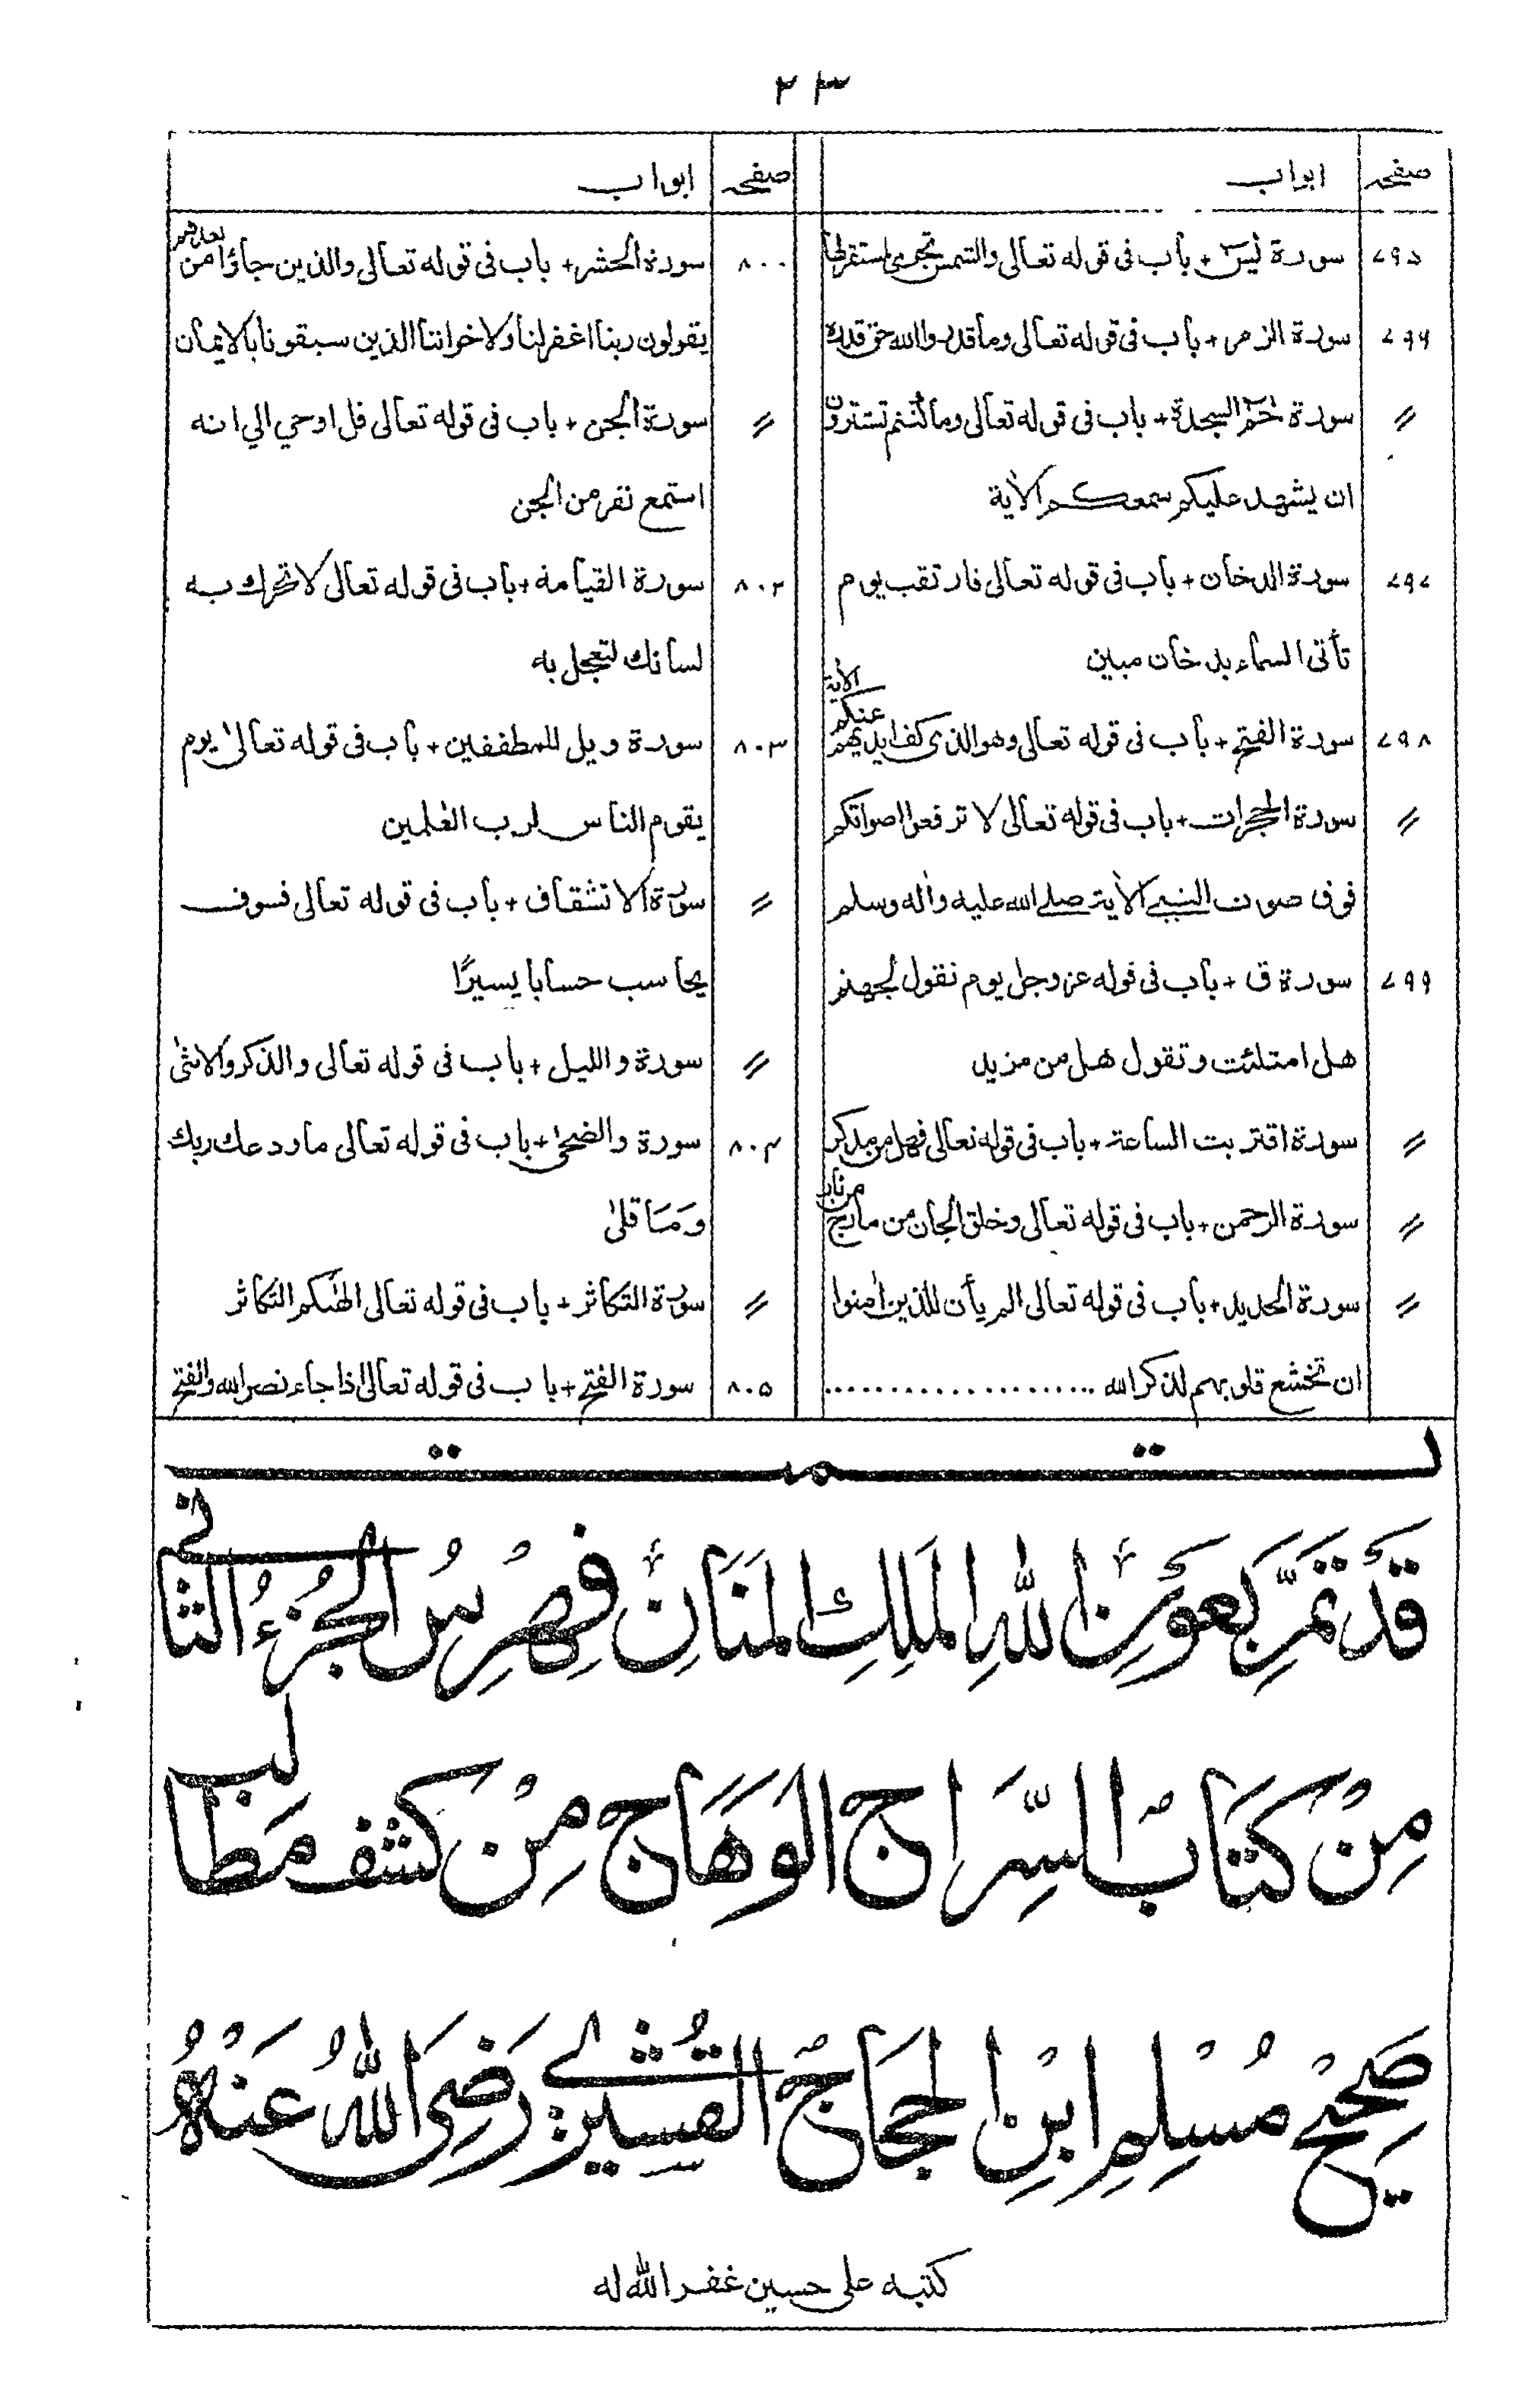 ٢٣
صفحه ابواب
٧٩٥ سورة يٰسٓ + باب فى قوله تعالى والشمس تجرى لمستقر لها
٧٩٦ سورة الزمر + باب فى قوله تعالى وما قدروا الله حق قدره
〃 سورة حٰمٓ السجدة + باب فى قوله تعالى وما كنتم تستترون
ان يشهد عليكم سمعكم الأية
٧٩٧ سورة الدخان + باب فى قوله تعالى فارتقب يوم
تأتى السماء بدخان مبين
٧٩٨ سورة الفتح + باب فى قوله تعالى وهو الذى كف ايديهم عنكم الأية
〃 سورة الحجرات + باب فى قوله تعالى لا ترفعوا اصواتكم
فوق صوت النبى الأية صلى الله عليه وأله وسلم
٧٩٩ سورة ق + باب فى قوله عز وجل يوم نقول لجهنم
هل امتلئت وتقول هل من مزيد
〃 سورة اقتربت الساعة + باب فى قوله تعالى فهل من مدكر
〃 سورة الرحمن + باب فى قوله تعالى وخلق الجان من مارج من نار
〃 سورة الحديد + باب فى قوله تعالى الم يأن للذين أمنوا
ان تخشع قلوبهم لذكر الله ....................
صفحه ابواب
٨٠٠ سورة الحشر + باب فى قوله تعالى والذين جاؤا من بعدهم
يقولون ربنا اغفر لنا ولاخواننا الذين سبقونا بالايمان
〃 سورة الجن + باب فى قوله تعالى قل اوحي الي انه
استمع نفر من الجن
٨٠٢ سورة القيامة + باب فى قوله تعالى لا تحرك به
لسانك لتعجل به
٨٠٣ سورة ويل للمطففين + باب فى قوله تعالىٰ يوم
يقوم الناس لرب العٰلمين
〃 سورة الانشقاف + باب فى قوله تعالى فسوف
يحاسب حسابا يسيرًا
〃 سورة والليل + باب فى قوله تعالى والذكر والانثىٰ
٨٠٤ سورة والضحىٰ + باب فى قوله تعالى ما ودعك ربك
وَمَا قلىٰ
〃 سورة التكاثر + باب فى قوله تعالى الهٰىكم التكاثر
٨٠٥ سورة الفتح + باب فى قوله تعالى اذا جاء نصر الله والفتح
تمت
قَدْ تَمَّ بِعَوْنِ اللهِ المَلِكِ المَنَّانِ فِهْرِسُ الجُزْءُ الثَّانى
مِنْ كِتَابْ السِّرَاجْ الوَهَّاجْ مِنْ كَشف مَطَالب
صَحِيْح مُسْلِمِ ابْنِ الحَجَاجْ القُشَيْرى رَضِىَ اللهُ عَنْهُ
كتبه على حسين غفر الله له